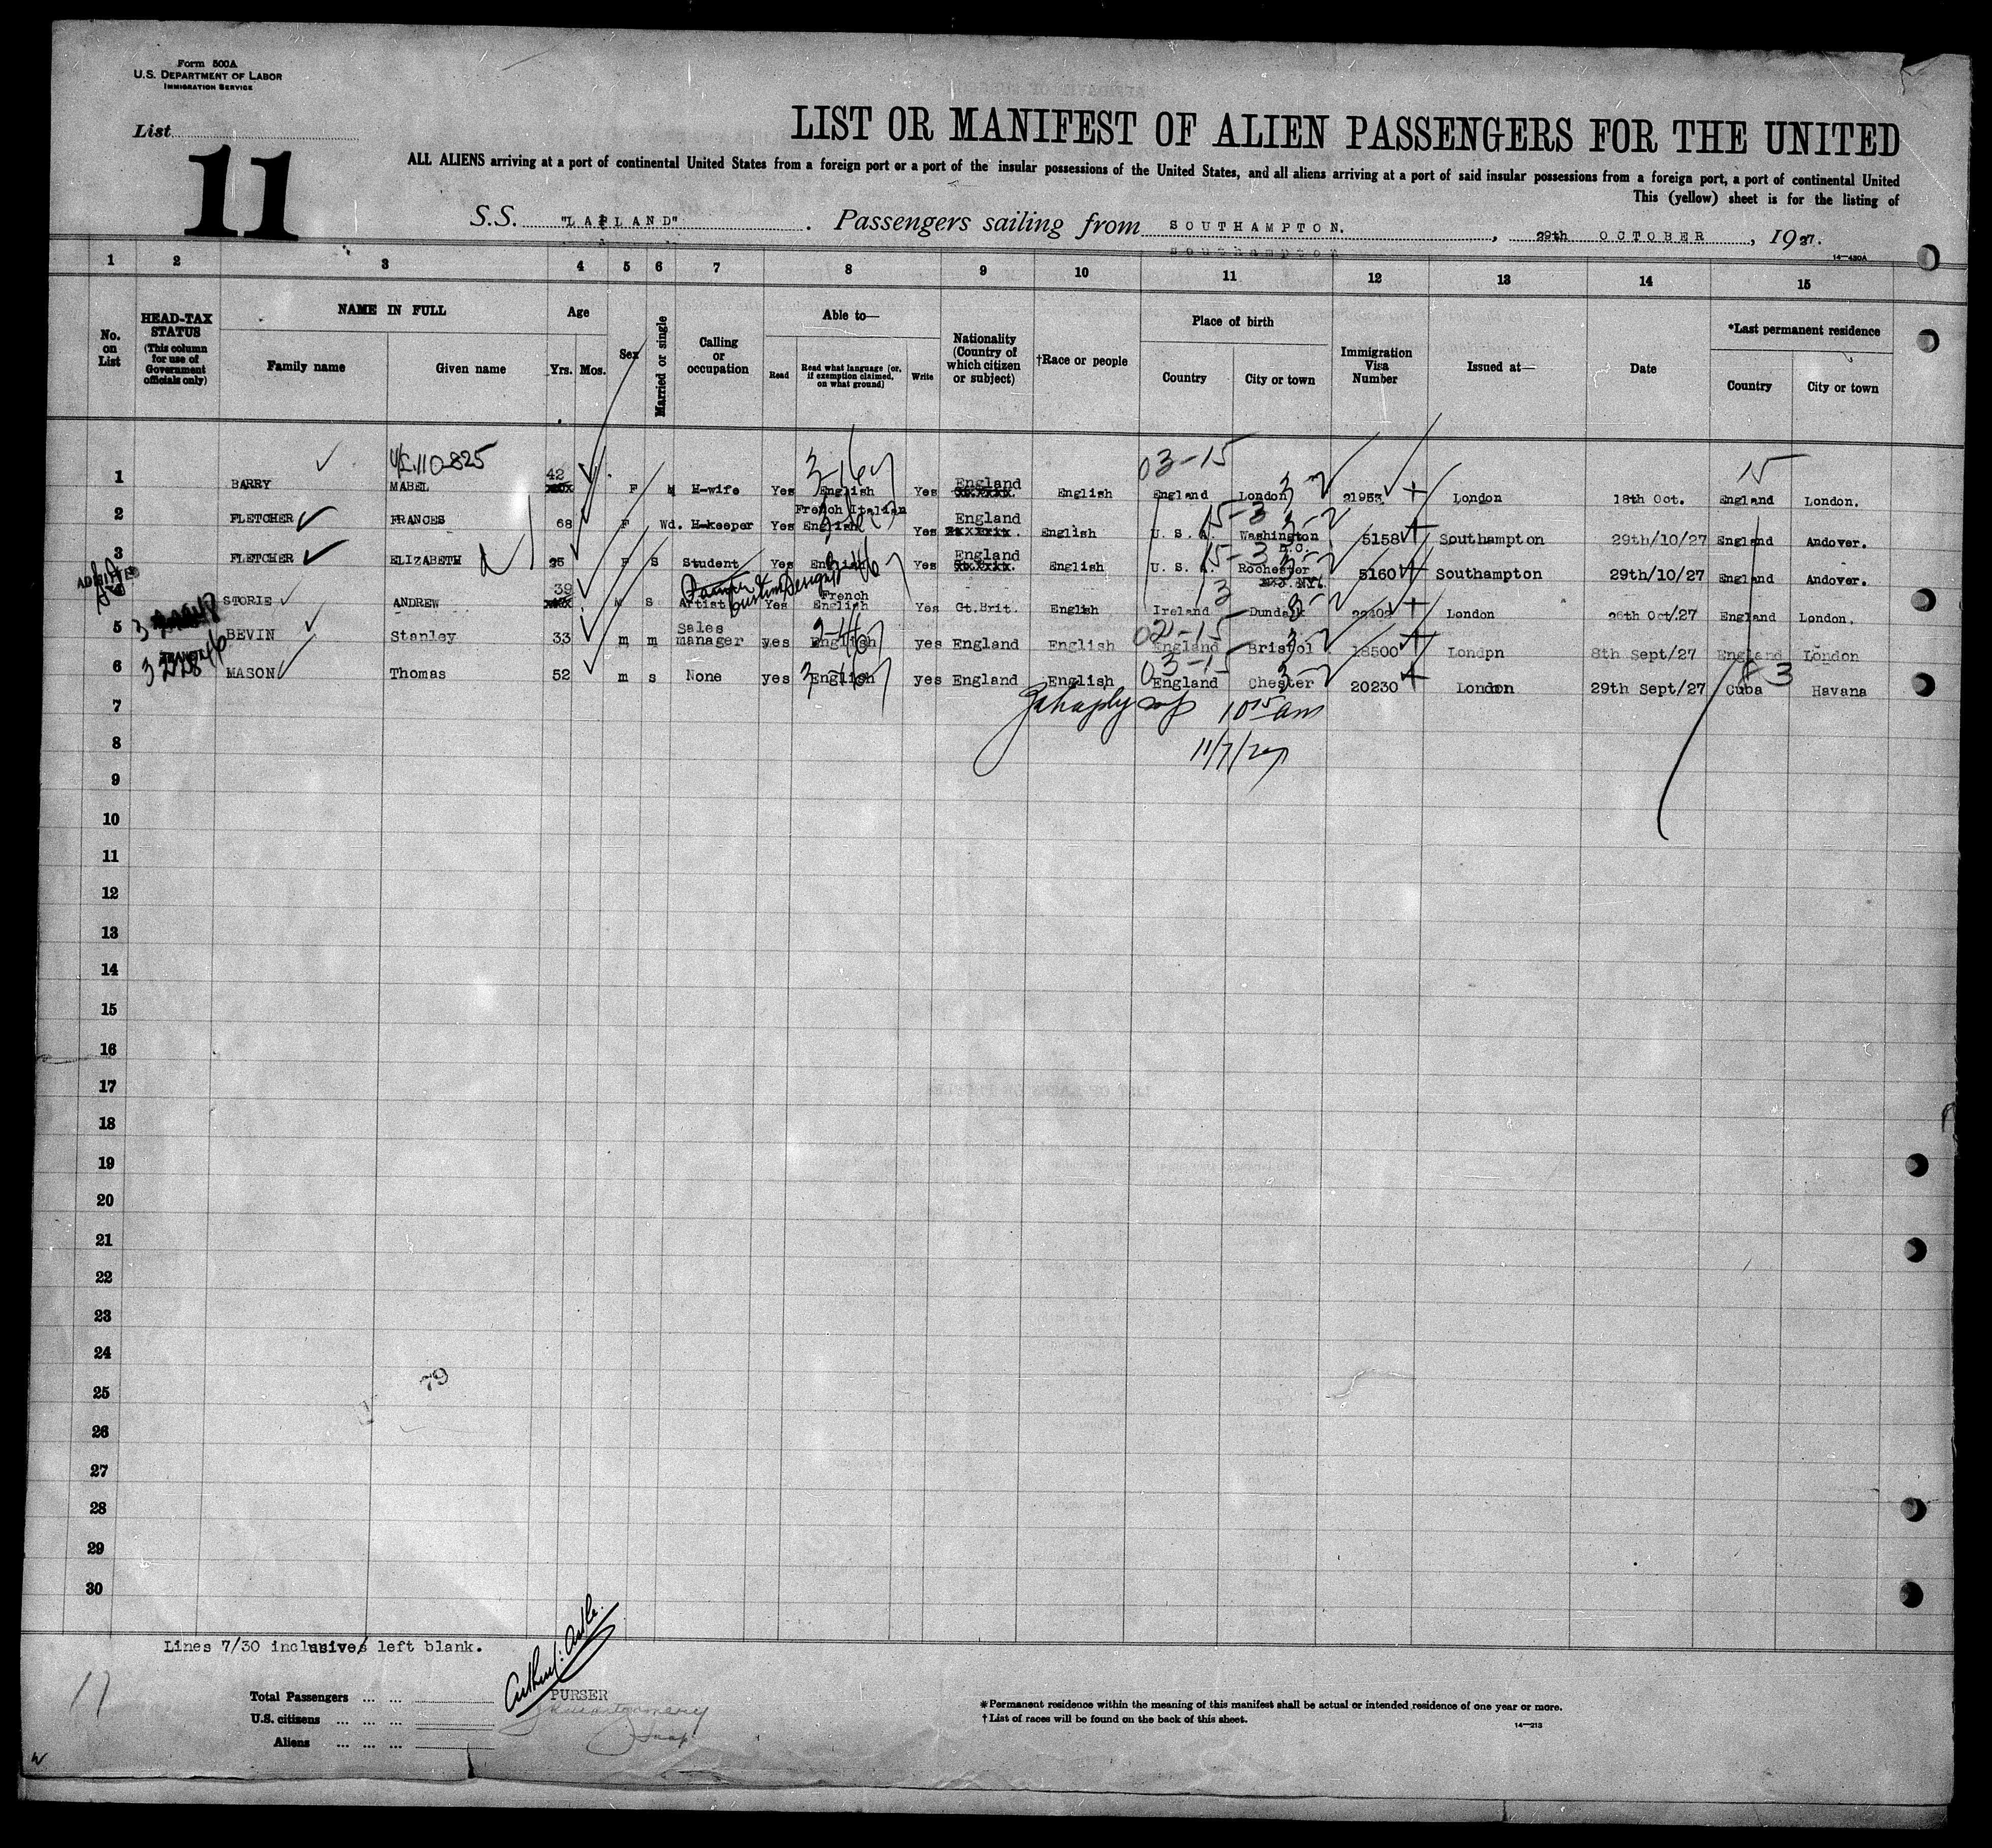 Form 500A
U.S. DEPARTMENT OF LABOR
IMMIGRATION SERVICE
List
11
LIST OR MANIFEST OF ALIEN PASSENGERS FOR THE UNITED
ALL ALIENS arriving at a port of continental United States from a foreign port or a port of the insular possessions of the United States, and all aliens arriving at a port of said insular possessions from a foreign port, a port of continental United
This (yellow) sheet is for the listing of
S.S. "LAPLAND". Passengers sailing from SOUTHAMPTON. , 29th OCTOBER , 1927.
14—430A
1 2 3 4 5 6 7 8 9 10 11 12 13 14 15
No. on List
HEAD-TAX STATUS
(This column for use of Government officials only)
NAME IN FULL
Family name
Given name
Age
Yrs. Mos.
Sex
Married or single
Calling or occupation
Able to—
Read
Read what language (or, if exemption claimed, on what ground)
Write
Nationality (Country of which citizen or subject)
†Race or people
Place of birth
Country
City or town
Immigration Visa Number
Issued at—
Date
*Last permanent residence
Country
City or town
03-15 15
1 BARRY MABEL 42 F M H-wife Yes English Yes England English England London 21953 London 18th Oct. England London.
2 FLETCHER FRANCES 68 F Wd. H-keeper Yes French Italian English Yes England English U. S. A. Washington D.C. 5158 Southampton 29th/10/27 England Andover.
3 FLETCHER ELIZABETH 25 F S Student Yes English Yes England English U. S. A. Rochester N.Y. 5160 Southampton 29th/10/27 England Andover.
ADMITTED
STORIE ANDREW 39 M S Artist Yes French English Yes Gt.Brit. English Ireland Dundalk London 26th Oct/27 England London.
5 BEVIN Stanley 33 m m Sales manager yes English yes England English England Bristol 18500 London 8th Sept/27 England London
6 MASON Thomas 52 m s None yes English yes England English England Chester 20230 London 29th Sept/27 Cuba Havana
7 10 15 am
8 11/7/27
9
10
11
12
13
14
15
16
17
18
19
20
21
22
23
24
25
26
27
28
29
30
79
Lines 7/30 inclusive left blank.
11
Total Passengers ... ...
U.S. citizens ... ... ...
Aliens ... ... ...
PURSER
*Permanent residence within the meaning of this manifest shall be actual or intended residence of one year or more.
†List of races will be found on the back of this sheet.
14—213